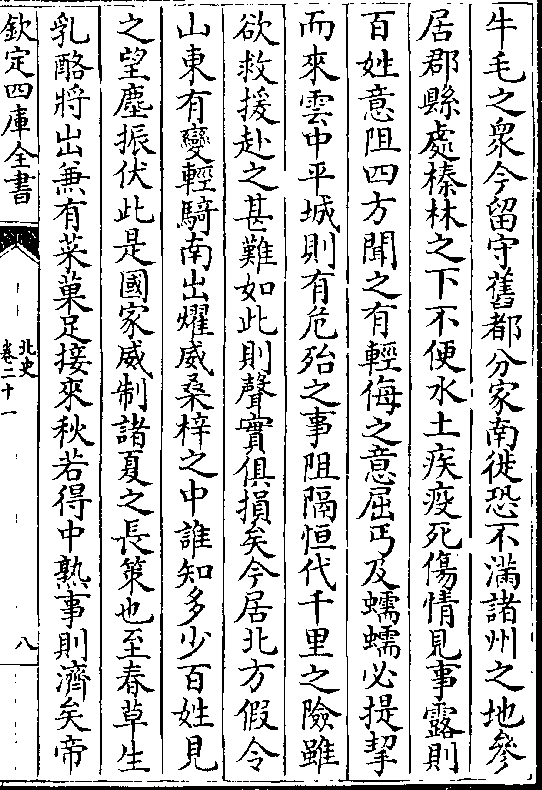 牛毛之衆今留守舊都分家南徙恐不滿諸州之地參
居郡縣處榛林之下不便水土疾疫死傷情見事露則
百姓意阻四方聞之有輕侮之意屈丐及蠕蠕必提挈
而來雲中平城則有危殆之事阻隔恒代千里之險雖
欲救援赴之甚難如此則聲實俱損矣今居北方假令
山東有變輕騎南出燿威桑梓之中誰知多少百姓見
之望塵振伏此是國家威制諸夏之長策也至春草生
乳酪將出兼有菜菓足接來秋若得中熟事則濟矣帝
欽定四庫全書
北史
卷二十一
八